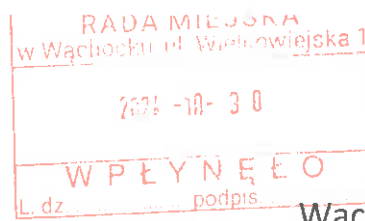 RADA MIEJSKA
w Wąchocku ul. Wielkowiejska 1
2024 -10- 30
WPŁYNĘŁO
L. dz. podpis
Wąc